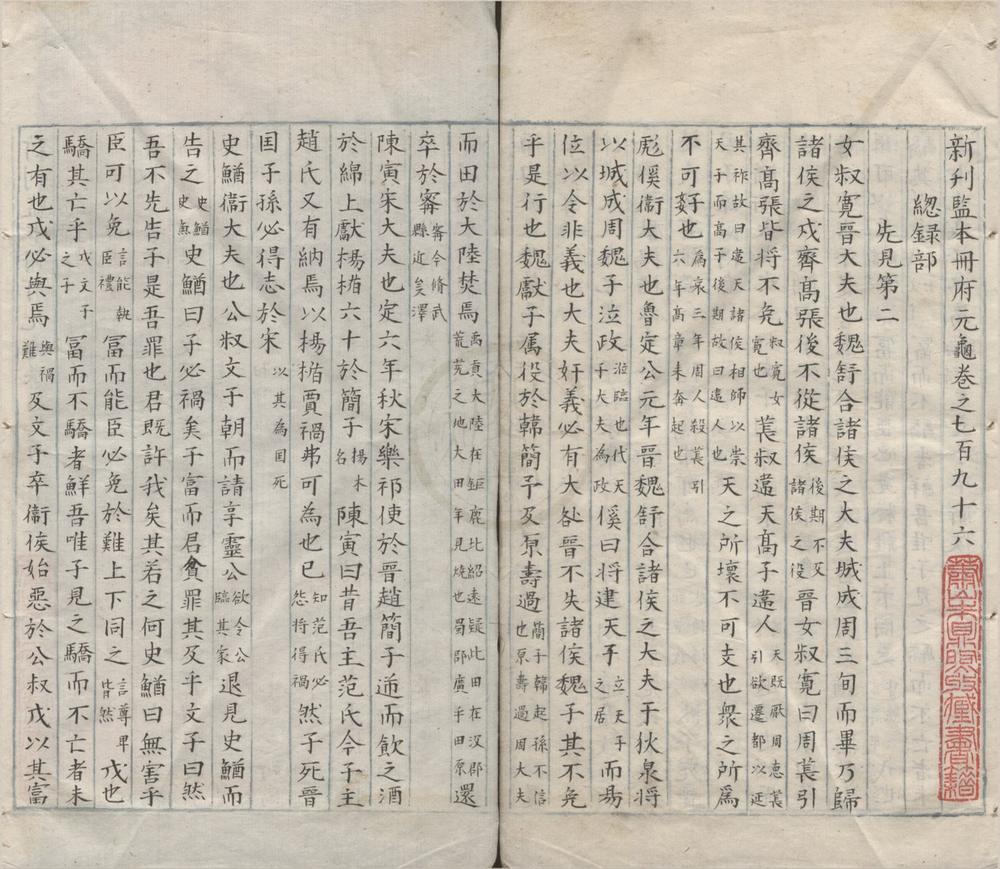 新刋監本冊府元龜卷之七百九十六
總録部
先見第二
女叔寛晉大夫也魏舒合諸侯之大夫城成周三旬而畢乃歸
諸侯之戍齊髙張後不從諸侯後期不及諸侯之役晉女叔寛曰周萇引
齊髙張皆將不免叔寛女寛也萇叔違天髙子違人天既厭周德萇引欲遷都以延
其祚故曰違天諸侯相帥以崇天子而髙子後期故曰違人也天之所壊不可支也衆之所為
不可奸也為哀三年周人殺萇引六年髙章来奔起也
彪傒衛大夫也魯定公元年晉魏舒合諸侯之大夫于狄泉將
以城成周魏子泣政涖臨也代天子大夫為政傒曰将建天子立天子之居而昜
位以令非義也大夫奸義必有大咎晉不失諸侯魏子其不免
乎是行也魏獻子属役於韓簡子及原壽過簡子韓起孫不信也原壽過周大夫
而田於大陸焚焉禹貢大陸在鉅鹿北紹逺疑此田在汲郡荒芜之地大田年見燒也蜀郡廣乎田原還
卒於甯甯今脩武縣近吳澤
陳寅宋大夫也定六年秋宋樂祁使於晉趙簡子逆而飲之酒
於綿上獻楊楯六十於簡子楊木名陳寅曰昔吾主范氏今子主
趙氏又有納焉以楊楯賈禍弗可為也已知范氏必怨将得禍然子死晉
囯子孫必得志於宋以其為囯死
史鰌衞大夫也公叔文子朝而請享靈公欲令公臨其家退見史鰌而
告之史鰌史魚史鰌曰子必禍矣子富而君貪罪其及乎文子曰然
吾不先告子是吾罪也君既許我矣其若之何史鰌曰無害乎
臣可以免言能執臣禮冨而能臣必免於難上下同之言尊卑皆然戍也
驕其亡乎戍文子之子冨而不驕者鮮吾唯子見之驕而不亡者未
之有也戍必與焉與禍難及文子卒衞侯始惡於公叔戍以其富